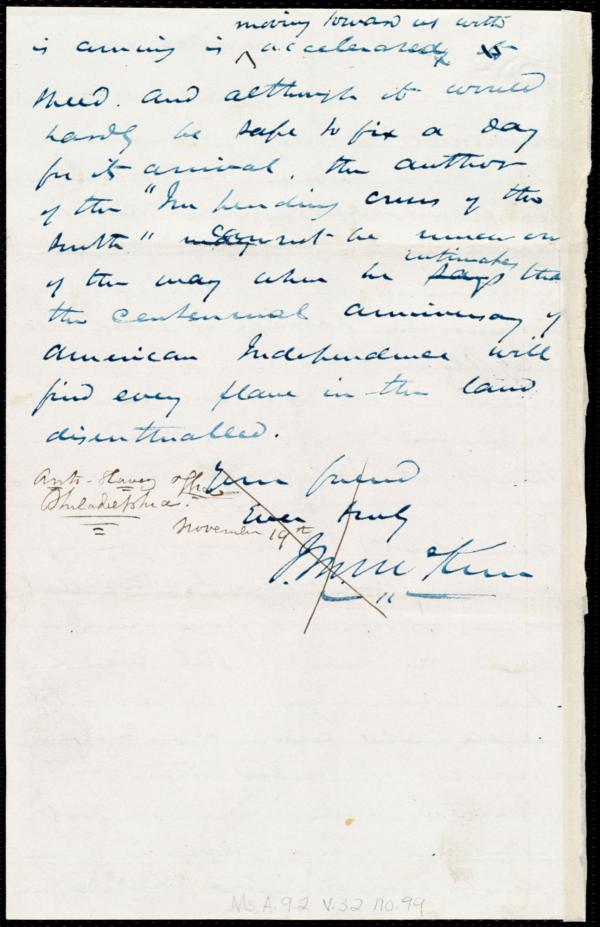 moving toward us with
is coming is ^ accelerated
speed. And although it would
hardly be safe to fix a day
for its arrival, the author
of the "Impending crisis of the
South" cannot be
intimates
of the way when he says that
the centennial anniversary of
American Independence will
find every slave in the land
disenthralled.
Your friend
Ever truly
J. M. McKim
Anti-Slavery Office
Philadelphia.
November 19th
Ms. A. 9.2 v. 32 no. 99